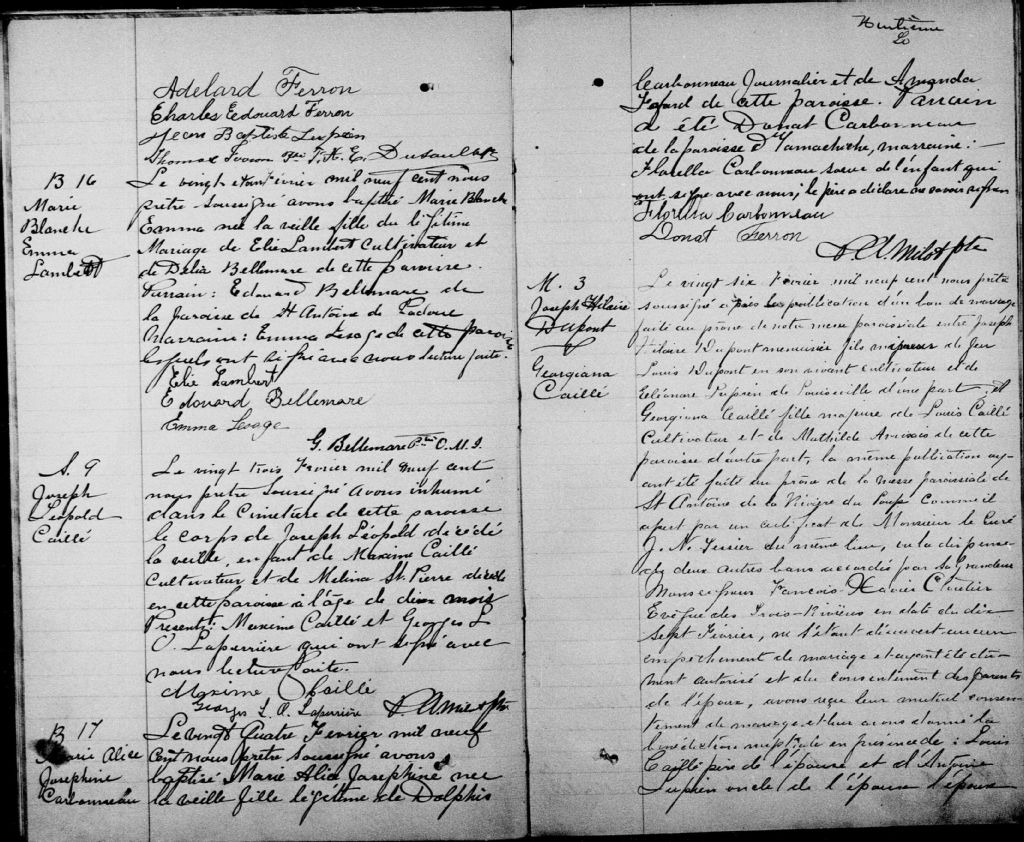 Adelard Ferron
Charles Edouard Ferron
Jean Baptiste Lupien
Thomas Ferron
B 16
Marie
Blanche
Emma
Lambert
Le vingt Février mil neuf cent nous
prêtre soussigné avons baptisé Marie Blanche
Emma née la veille fille du légitime
Mariage de Elie Lambert Cultivateur et
de Délia Bellemare de cette paroisse.
Parrain: Edouard Bellemare de
la paroisse de St Antoine de Padoue
Marraine: Emma Lesage de cette paroisse
lesquels ont signé avec nous Lecture faite.
Elie Lambert
Edouard Bellemare
Emma Lesage
G. Bellemare Ptre O.M.I.
S. 9
Joseph
Léopold
Caillé
Le vingt trois Février mil neuf cent
nous prêtre soussigné avons inhumé
dans le Cimetière de cette paroisse
le corps de Joseph Léopold décédé
la veille, enfant de Maxime Caillé
Cultivateur et de Melina St. Pierre décédé
en cette paroisse à l'âge de deux mois
Présents: Maxime Caillé et Georges L
O. Laperrière qui ont signé avec
nous lecture faite.
Maxime Caillé
Georges L. O. Laperrière
A. Milot Ptre
B 17
Marie Alice
Josephine
Carbonneau
Le vingt Quatre Fevrier mil neuf
Cent nous prêtre soussigné avons
baptisé Marie Alice Josephine née
la veille fille légitime de Dolphis
Huitième
Carbonneau Journalier et de Amanda
Lafond de cette paroisse. Parrain
a été Donat Carbonneau
de la paroisse d'Yamachiche, marraine:
Florella Carbonneau soeur de l'enfant qui
ont signé avec nous; le père a déclaré ne savoir signer
Carbonneau
Donat Ferron
A. Milot Ptre
M. 3
Joseph Hilaire
Dupont
&
Georgiana
Caillé
Le vingt six Février mil neuf cent nous prêtre
soussigné après la publication d'un ban de mariage
faite au prône de notre messe paroissiale entre Joseph
Hilaire Dupont menuisier fils majeur de feu
Louis Dupont en son vivant cultivateur et de
Eléonore Lupien de Louiseville d'une part; et
Georgiana Caillé fille majeure de Louis Caillé
Cultivateur et de Mathilde de cette
paroisse d'autre part; la même publication ay-
ant été faite au prône de la messe paroissiale de
St Antoine de la Rivière du Loup Comme il
apert par un certificat de Monsieur le Curé
J. N. Tessier du même lieu, vu la dispense
de deux autres bans accordée par Sa Grandeur
Monseigneur Francois Xavier Cloutier
Evêque des Trois-Rivières en date du dix
sept Février, ne s'étant découvert aucun
empêchement de mariage et ayant été dû-
ment autorisé et du consentement des parents
de l'époux, avons reçu leur mutuel consen-
tement de mariage et leur avons donné la
bénédiction nuptiale en présence de: Louis
Caillé père de l'épouse et d'Antoine
Lupien oncle de l'époux l'époux